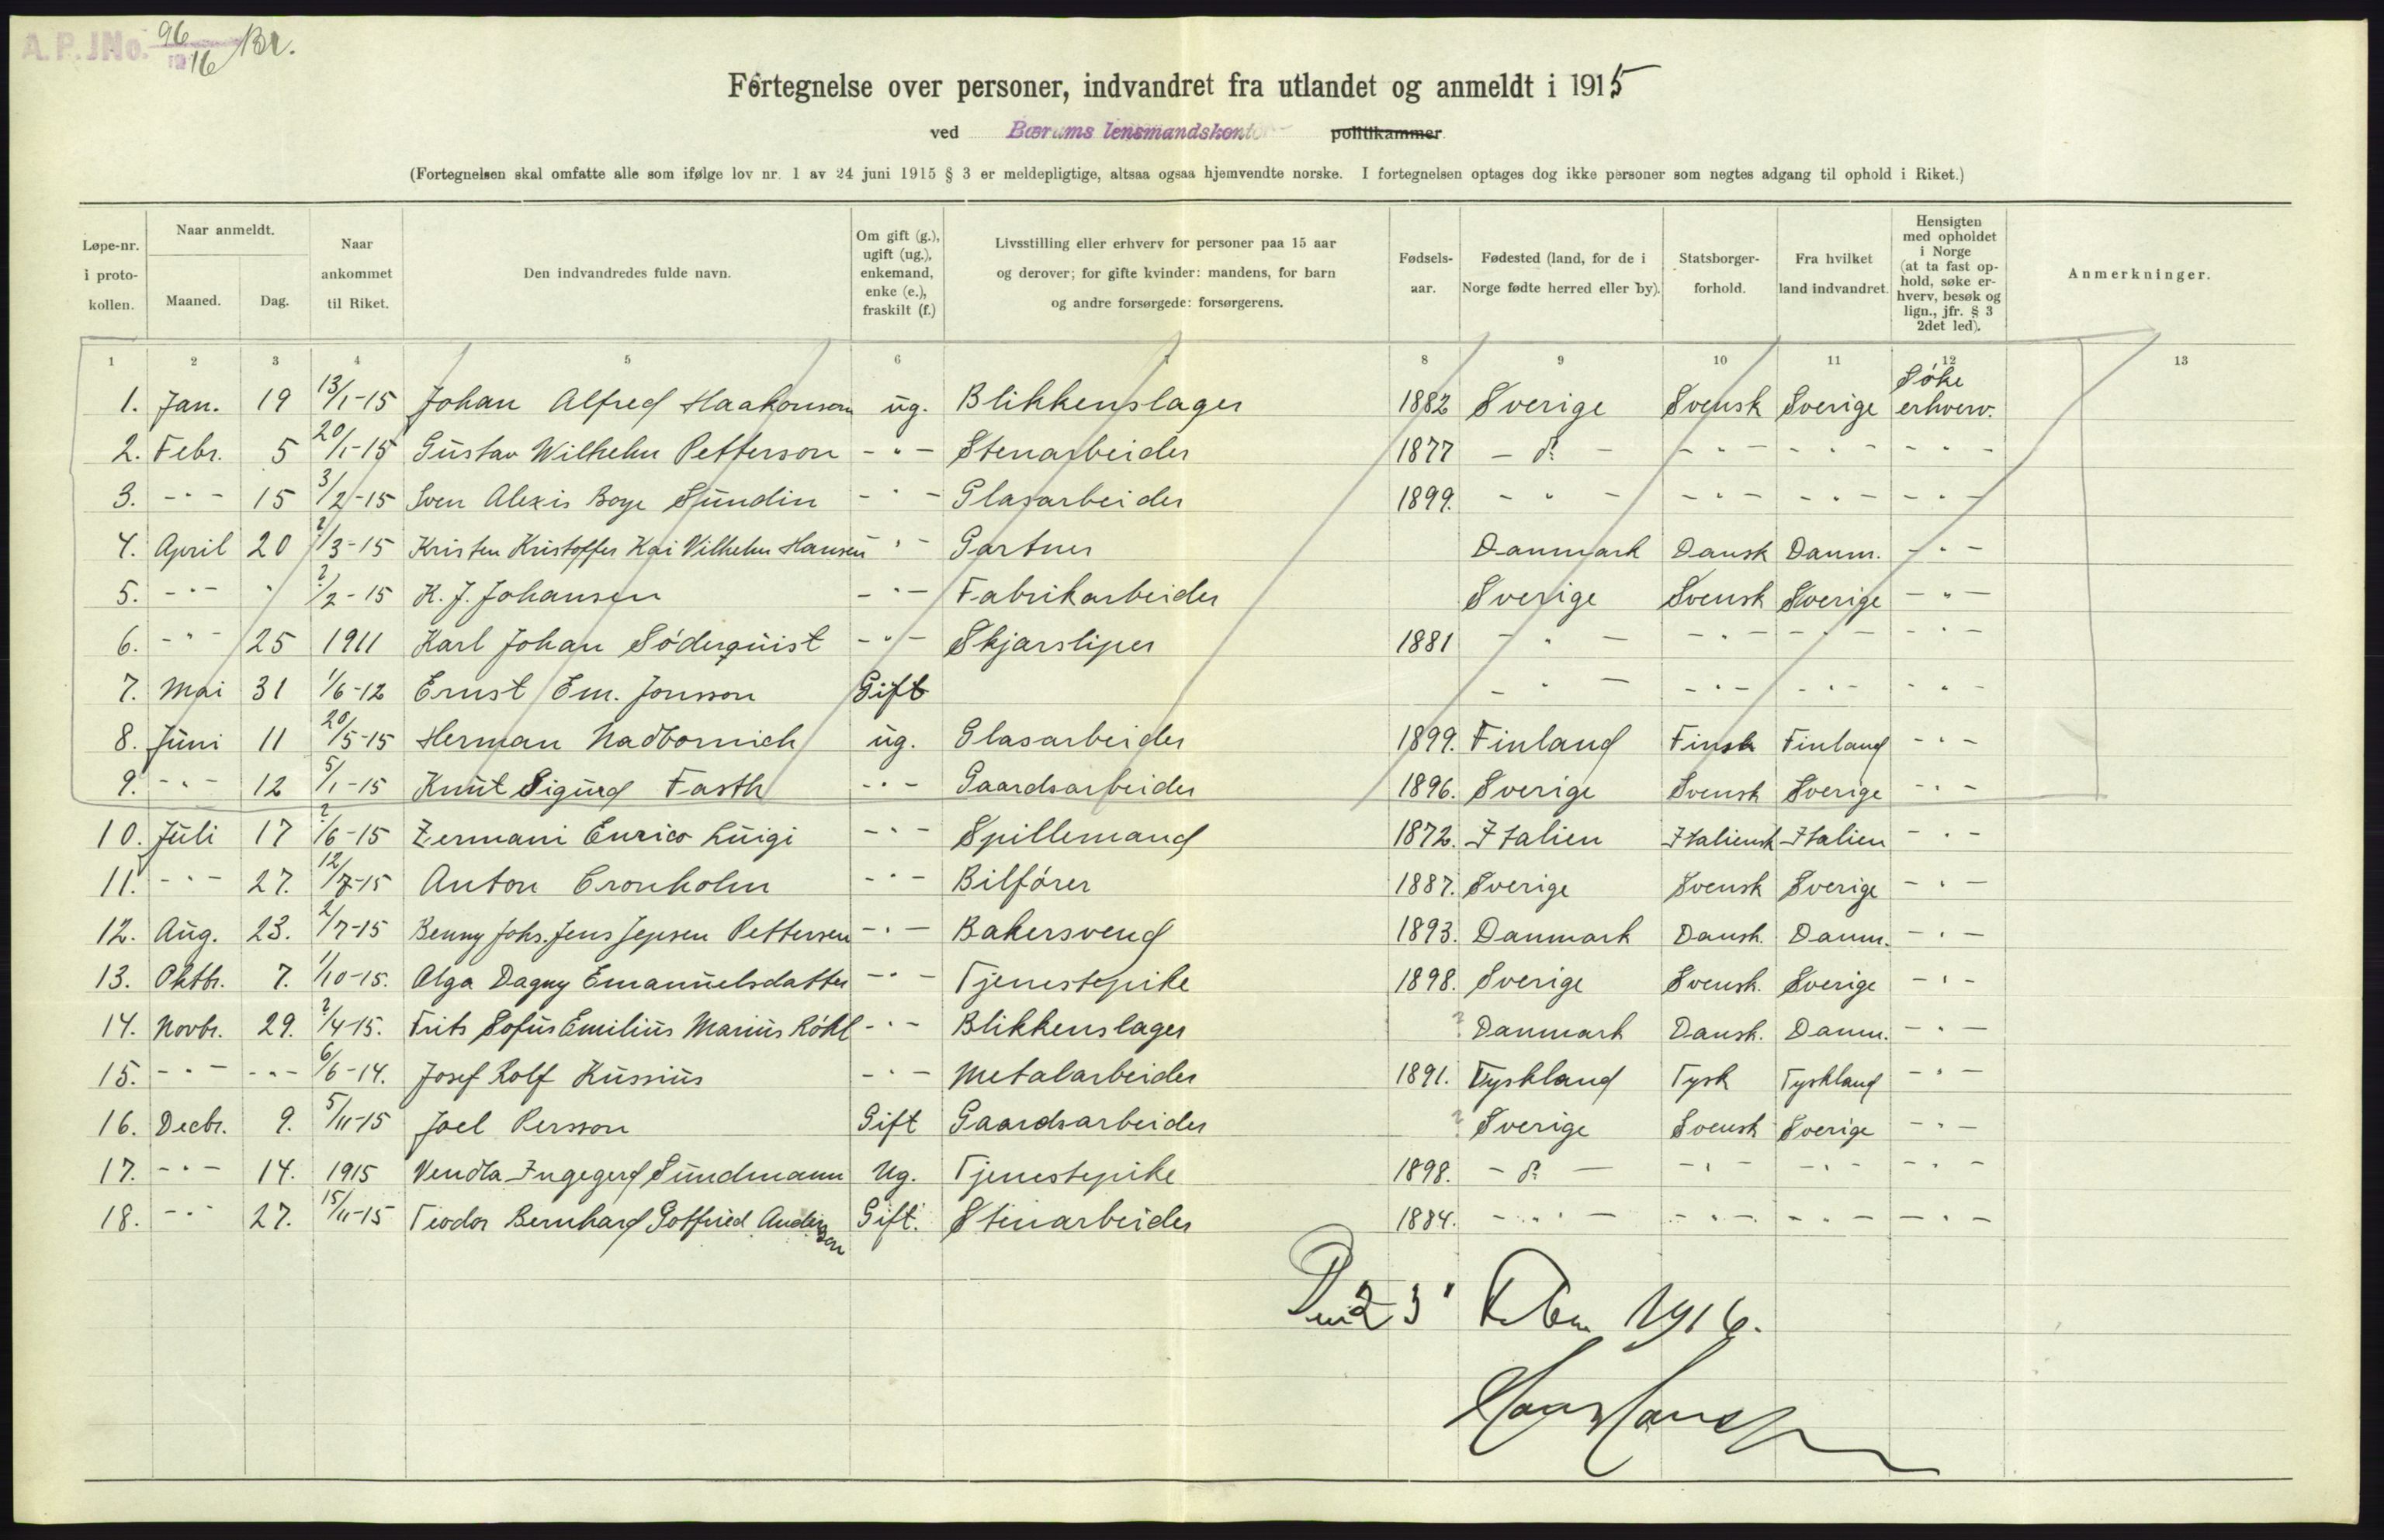 A.P.JNo. 96/1916 Br.
Fortegnelse over personer, indvandret fra utlandet og anmeldt i 1915
ved Bærums lensmandskontor politikammer.
(Fortegnelsen skal omfatte alle som ifølge lov nr. 1 av 24 juni 1915 § 3 er meldepligtige, altsaa ogsaa hjemvendte norske. I fortegnelsen optages dog ikke personer som negtes adgang til ophold i Riket.)
Løpe-nr. i proto- kollen.
Naar anmeldt.
Maaned. Dag.
Naar ankommet til Riket.
Den indvandredes fulde navn.
Om gift (g.), ugift (ug.), enkemand, enke (e.), fraskilt (f.)
Livsstilling eller erhverv for personer paa 15 aar og derover; for gifte kvinder: mandens, for barn og andre forsørgede: forsørgerens.
Fødsels- aar.
Fødested (land, for de i Norge fødte herred eller by).
Statsborger- forhold.
Fra hvilket land indvandret.
Hensigten med opholdet i Norge (at ta fast op- hold, søke er- hverv, besøk og lign., jfr. § 3 2det led).
Anmerkninger.
1 2 3 4 5 6 7 8 9 10 11 12 13
1. Jan. 19 13/1-15 Johan Alfred Haakonson ug. Blikkenslager 1882 Sverige Svensk Sverige Søke erhverv.
2. Febr. 5 20/1-15 Gustav Wilhelm Petterson - " - Stenarbeider 1877 - d: - - " - - " - - " -
3. - " - 15 3/2-15 Sven Alexis Boye Sundin - " - Glasarbeider 1899. - " - - " - - " - - " -
4. April 20 ?/3-15 Kristen Kristoffer Kai Vilhelm Hansen - " - Gartner Danmark Dansk Danm. - " -
5. - " - " ?/2-15 K. J. Johansen - " - Fabrikarbeider Sverige Svensk Sverige - " -
6. - " - 25 1911 Karl Johan Söderquist - " - Skjærsliper 1881 - " - - " - - " - - " -
7. Mai 31 1/6-12 Ernst Em. Jonsson Gift - " - - " - - " - - " -
8. Juni 11 20/5-15 Herman Nadbornich ug. Glasarbeider 1899. Finland Finsk Finland - " -
9. - " - 12 5/1-15 Knut Sigurd Fasth - " - Gaardsarbeider 1896. Sverige Svensk Sverige - " -
10. Juli 17 ?/6-15 Zermani Enrico Luigi - " - Spillemand 1872. Italien Italiensk Italien - " -
11. - " - 27. 12/7-15 Anton Cronholm - " - Bilfører 1887. Sverige Svensk Sverige - " -
12. Aug. 23. 2/7-15 Benny Johs. Jens Jepsen Pettersen - " - Bakersvend 1893. Danmark Dansk. Danm. - " -
13. Oktbr. 7. 1/10-15. Olga Dagny Emanuelsdatter - " - Tjenestepike 1898. Sverige Svensk. Sverige - " -
14. Novbr. 29. ?/4-15. Frits Sofus Emilius Marius Röhl - " - Blikkenslager ? Danmark Dansk. Danm. - " -
15. - " - - " - 6/6-14. Josef Rolf Kussius - " - Metalarbeider 1891. Tyskland Tysk Tyskland - " -
16. Decbr. 9. 5/11-15 Joel Persson Gift Gaardsarbeider ? Sverige Svensk Sverige - " -
17. - " - 14. 1915 Vendla Ingegerd Sundmann Ug. Tjenestepike 1898. - d: - - " - - " - - " -
18. - " - 27. 15/11-15 Teodor Bernhard Gotfried Anderson Gift. Stenarbeider 1884. - " - - " - - " - - " -
Den 23' Febr. 1916.